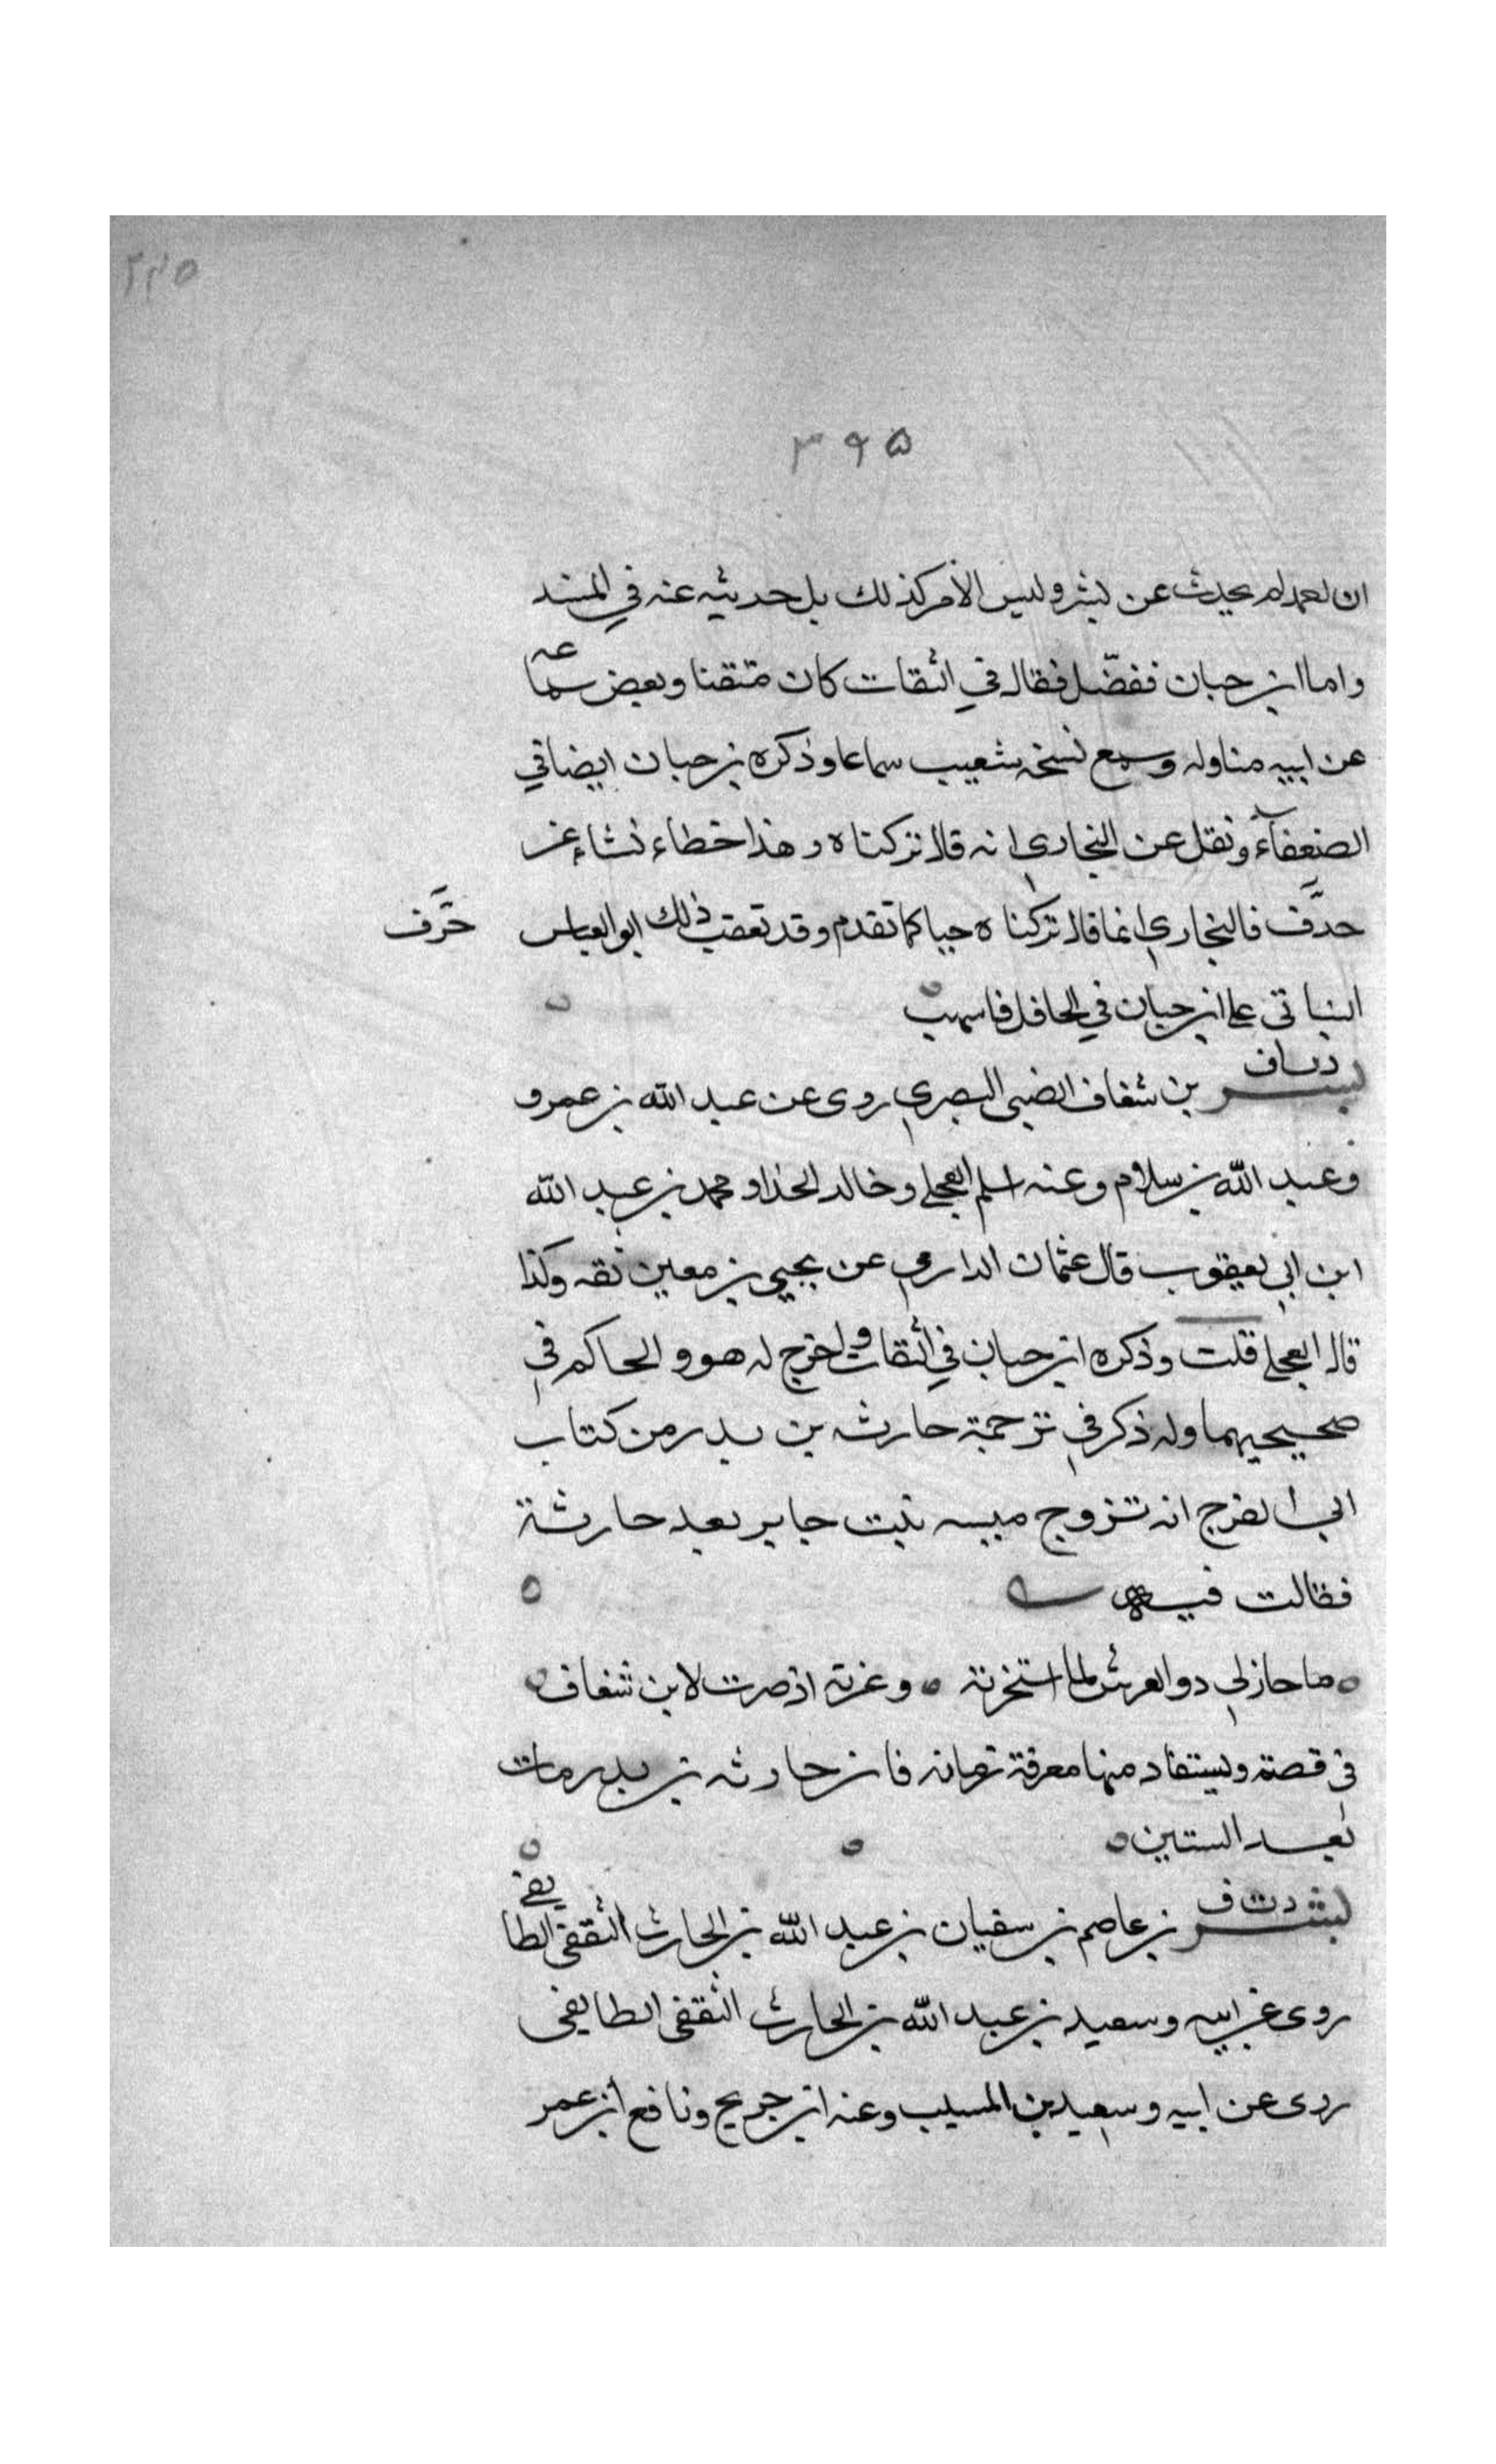 ۲۲۵
۳۹۵
ان احمد لم يحدث عن بشر وليس الأمر كذلك بل حديثه عنه في المسند
واما ابن حبان ففصّل فقال في الثقات كان متقنا وبعض سماعه
عن ابيه مناوله وسمع نسخه شعيب سماعا وذكره بن حبان ايضا في
الضعفآء ونقل عن البخاري انه قال تركناه وهذا خطاء نشاء عن
حدَّف فالبخاري انما قال تركناه حيا كما تقدم وقد تعقب ذلك ابو العباس
حَرَّف
النباتي على ابن حبان في الحافل فاسهب
د ت س ف
بشـر بن شغاف الضبي البصري روى عن عبد الله بن عمرو
وعبد الله بن سلام وعنه اسلم العجلي وخالد الحذا و محمد بن عبد الله
ابن ابي يعقوب قال عثمان الدارمي عن يحيى بن معين ثقه وكذا
قال العجلي قلت وذكره ابن حبان في الثقات واخرج له هو والحاكم في
صحيحيهما وله ذكر في ترجمة حارثه بن بدر من كتاب
ابي الفرج انه تزوج ميسه بنت جابر بعد حارثة
فقالت فيه
ما حار لي ذو العرش لما استخرته وعزته اذ صرت لابن شغاف
في قصة ويستفاد منها معرفة زمانه فان حارثه بن بدر مات
بعد الستين
د ت ف
بشـر بن عاصم بن سفيان بن عبد الله بن الحارث الثقفي الطايفي
روى عن ابيه وسعيد بن عبد الله بن الحارث الثقفي الطايفي
روى عن ابيه وسعيد بن المسيب وعنه ابن جريج ونافع ابن عمر